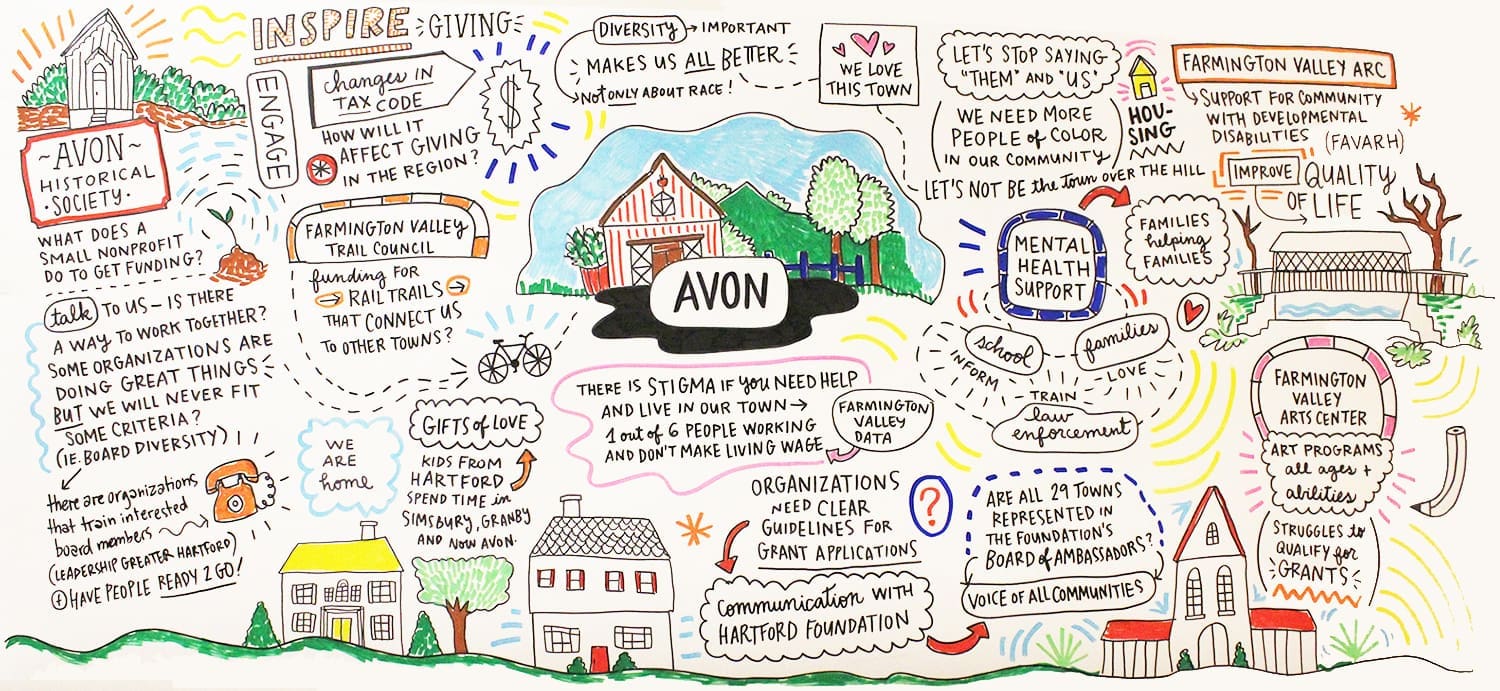 ~AVON~
HISTORICAL
·SOCIETY·
WHAT DOES A
SMALL NONPROFIT
DO TO GET FUNDING?
talk TO US – IS THERE
A WAY TO WORK TOGETHER?
SOME ORGANIZATIONS ARE
DOING GREAT THINGS
BUT WE WILL NEVER FIT
SOME CRITERIA?
(IE. BOARD DIVERSITY)
there are organizations
that train interested
board members
(LEADERSHIP GREATER HARTFORD)
+ HAVE PEOPLE READY 2 GO!
INSPIRE GIVING
ENGAGE
changes IN
TAX CODE
HOW WILL IT
AFFECT GIVING
IN THE REGION?
$
FARMINGTON VALLEY
TRAIL COUNCIL
funding FOR
→ RAIL TRAILS →
THAT CONNECT US
TO OTHER TOWNS?
WE
ARE
home
GIFTS of LOVE
KIDS FROM
HARTFORD
SPEND TIME in
SIMSBURY, GRANBY
AND NOW AVON.
DIVERSITY → IMPORTANT
MAKES US ALL BETTER
Not ONLY ABOUT RACE!
WE LOVE
THIS TOWN
AVON
THERE IS STIGMA IF YOU NEED HELP
AND LIVE IN OUR TOWN →
1 out of 6 PEOPLE WORKING
AND DON'T MAKE LIVING WAGE
FARMINGTON
VALLEY
DATA
ORGANIZATIONS
NEED CLEAR
GUIDELINES FOR
GRANT APPLICATIONS
?
Communication WITH
HARTFORD FOUNDATION
ARE ALL 29 TOWNS
REPRESENTED IN
THE FOUNDATION'S
BOARD of AMBASSADORS?
VOICE OF ALL COMMUNITIES
LET'S STOP SAYING
"THEM" AND "US"
WE NEED MORE
PEOPLE of COLOR
IN OUR COMMUNITY
HOU-
SING
LET'S NOT BE the TOWN OVER THE HILL
MENTAL
HEALTH
SUPPORT
FAMILIES
helping
FAMILIES
school
families
INFORM
TRAIN
LOVE
law
enforcement
FARMINGTON VALLEY ARC
SUPPORT FOR COMMUNITY
WITH DEVELOPMENTAL
DISABILITIES
(FAVARH)
IMPROVE QUALITY
OF LIFE
FARMINGTON
VALLEY
ARTS CENTER
ART PROGRAMS
all ages +
abilities
STRUGGLES to
QUALIFY for
GRANTS